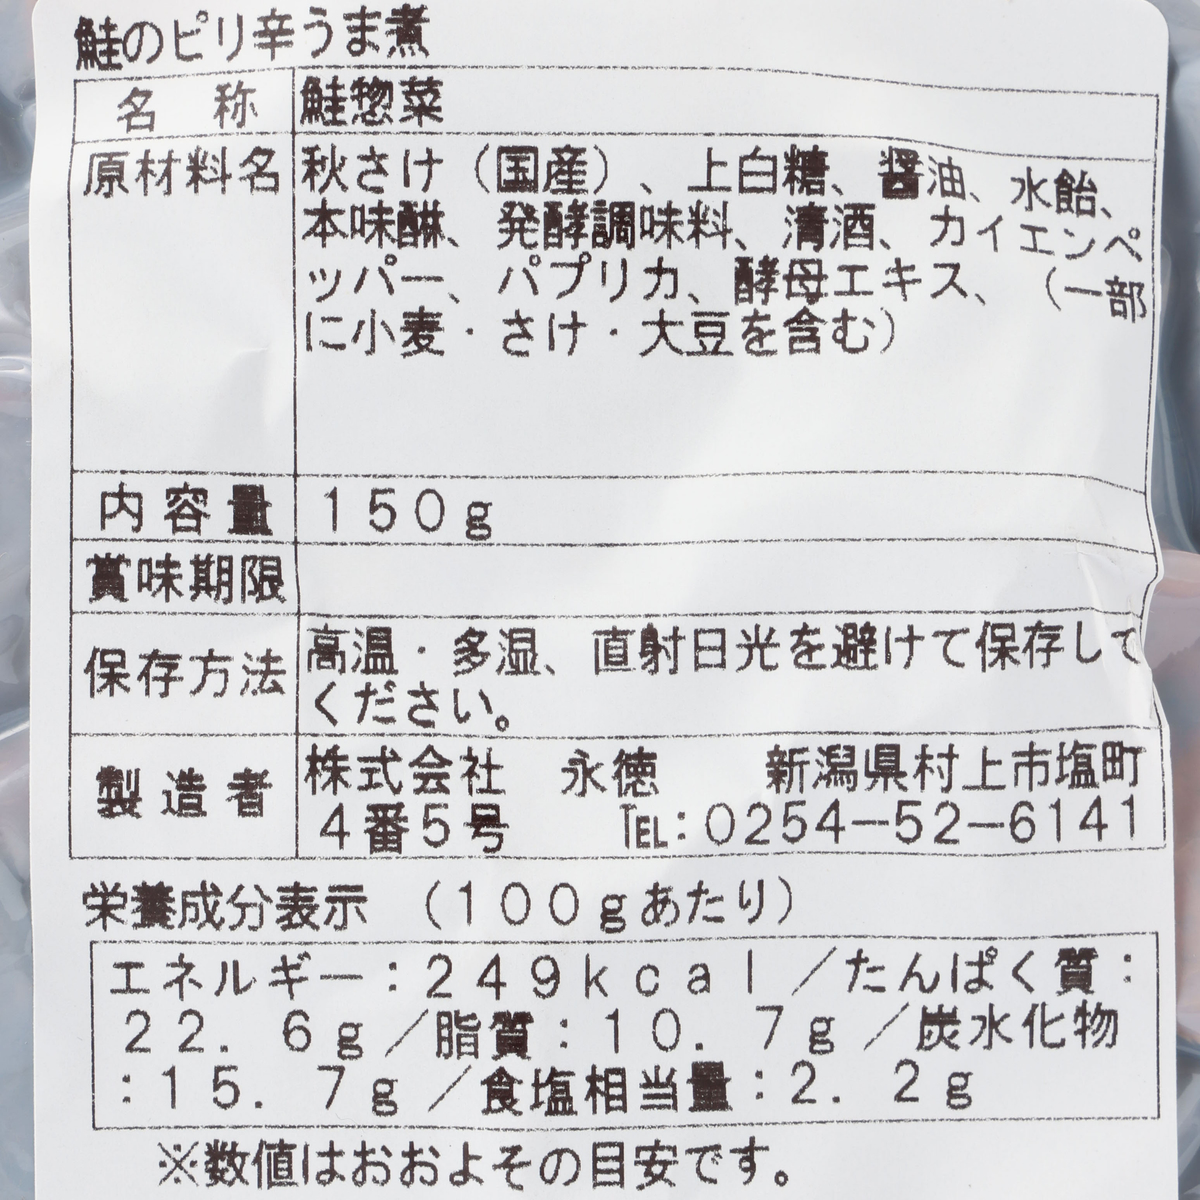 鮭のピリ辛うま煮
名 称 鮭惣菜
原材料名 秋さけ（国産）、上白糖、醤油、水飴、
本味醂、発酵調味料、清酒、カイエンペ
ッパー、パプリカ、酵母エキス、（一部
に小麦・さけ・大豆を含む）
内容量 150g
賞味期限
保存方法 高温・多湿、直射日光を避けて保存して
ください。
製造者 株式会社 永徳 新潟県村上市塩町
4番5号 TEL:0254-52-6141
栄養成分表示 （100gあたり）
エネルギー:249kcal／たんぱく質:
22.6g／脂質:10.7g／炭水化物
:15.7g／食塩相当量:2.2g
※数値はおおよその目安です。